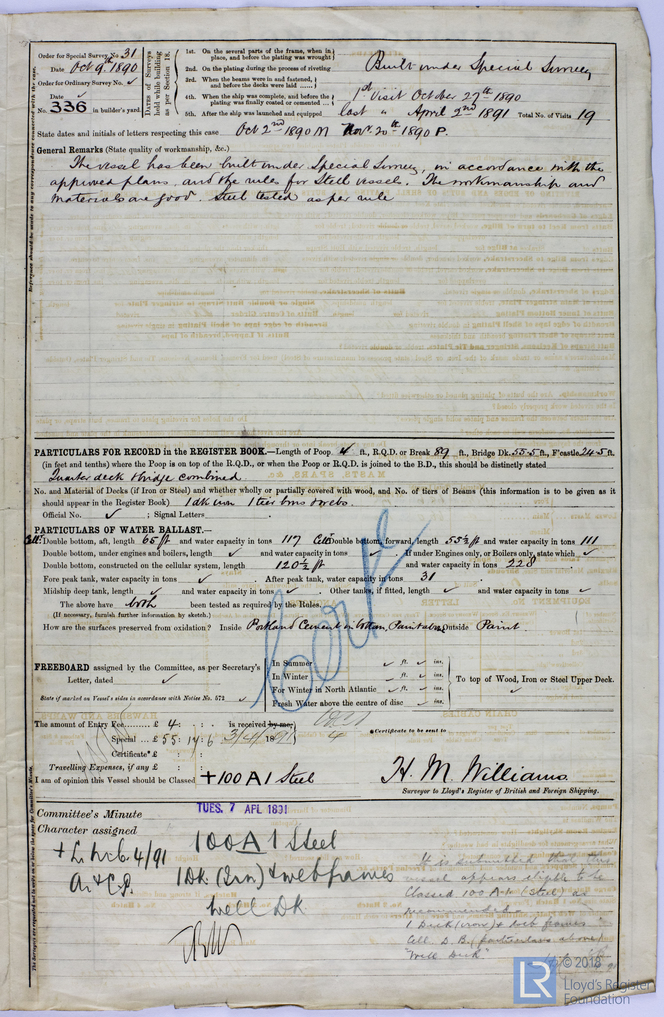 Order for Special Survey No. 31
Date Oct 9th 1890
Order for Ordinary Survey No. ✓
Date ✓
No. 336 in builder's yard.
DATES of Surveys held while building as per Section 18.
1st. On the several parts of the frame, when in place, and before the plating was wrought
2nd. On the plating during the process of riveting
3rd. When the beams were in and fastened, and before the decks were laid
4th. When the ship was complete, and before the plating was finally coated or cemented
5th. After the ship was launched and equipped
Built under Special Survey
1st Visit October 27th 1890
last " April 2nd 1891 Total No. of Visits 19
State dates and initials of letters respecting this case Oct 2nd 1890 M Nov. 20th 1890 P.
General Remarks (State quality of workmanship, &c.)
The vessel has been built under Special Survey, in accordance with the
approved plans, and the rules for Steel vessels. The workmanship and
materials are good. Steel tested as per rule
PARTICULARS FOR RECORD in the REGISTER BOOK.—Length of Poop 4 ft., R.Q.D. or Break 89 ft., Bridge Dk. 55.5 ft., F'castle 24.5 ft.
(in feet and tenths) where the Poop is on top of the R.Q.D., or when the Poop or R.Q.D. is joined to the B.D., this should be distinctly stated
Quarter deck & bridge combined
No. and Material of Decks (if Iron or Steel) and whether wholly or partially covered with wood, and No. of tiers of Beams (this information is to be given as it
should appear in the Register Book) 1 dk iron 1 tier bms & webs.
Official No. ✓ ; Signal Letters
PARTICULARS OF WATER BALLAST.—
Cell: Double bottom, aft, length 65 ft and water capacity in tons 117 Cell: Double bottom, forward, length 55½ ft and water capacity in tons 111
Double bottom, under engines and boilers, length ✓ and water capacity in tons ✓ . If under Engines only, or Boilers only, state which ✓
Double bottom, constructed on the cellular system, length 120½ ft and water capacity in tons 228
Fore peak tank, water capacity in tons ✓ . After peak tank, water capacity in tons 31
Midship deep tank, length ✓ and water capacity in tons ✓ . Other tanks, if fitted, length ✓ and water capacity in tons ✓
The above have both been tested as required by the Rules.
(If necessary, furnish further information by sketch.)
How are the surfaces preserved from oxidation? Inside Portland Cement in bottom, Paint above Outside Paint.
FREEBOARD assigned by the Committee, as per Secretary's
Letter, dated ✓
State if marked on Vessel's sides in accordance with Notice No. 572 ✓
In Summer ✓ ft. ✓ ins.
In Winter ✓ ft. ✓ ins.
For Winter in North Atlantic ✓ ft. ✓ ins.
Fresh Water above the centre of disc ✓ ins.
To top of Wood, Iron or Steel Upper Deck.
Cert
The amount of Entry Fee £ 4 : : is received by me,
Special £ 55 : 14 : 6 3/4/1891
Certificate* £ : :
*Certificate to be sent to
Travelling Expenses, if any £
I am of opinion this Vessel should be Classed +100 A1 Steel
H. M. Williams
Surveyor to Lloyd's Register of British and Foreign Shipping.
Committee's Minute TUES. 7 APL 1891
Character assigned 100 A 1 Steel
+ L.M.C. 4/91
A. & C.P.
1 Dk (Iron) & web frames
Well Dk
It is submitted that this
vessel appears eligible to be
Classed 100 A.1. (Steel) as
recommended
1 Deck (iron) & web frames
Cell. D.B. (particulars above)
"Well Deck"
© 2018
LR
Lloyd's Register
Foundation